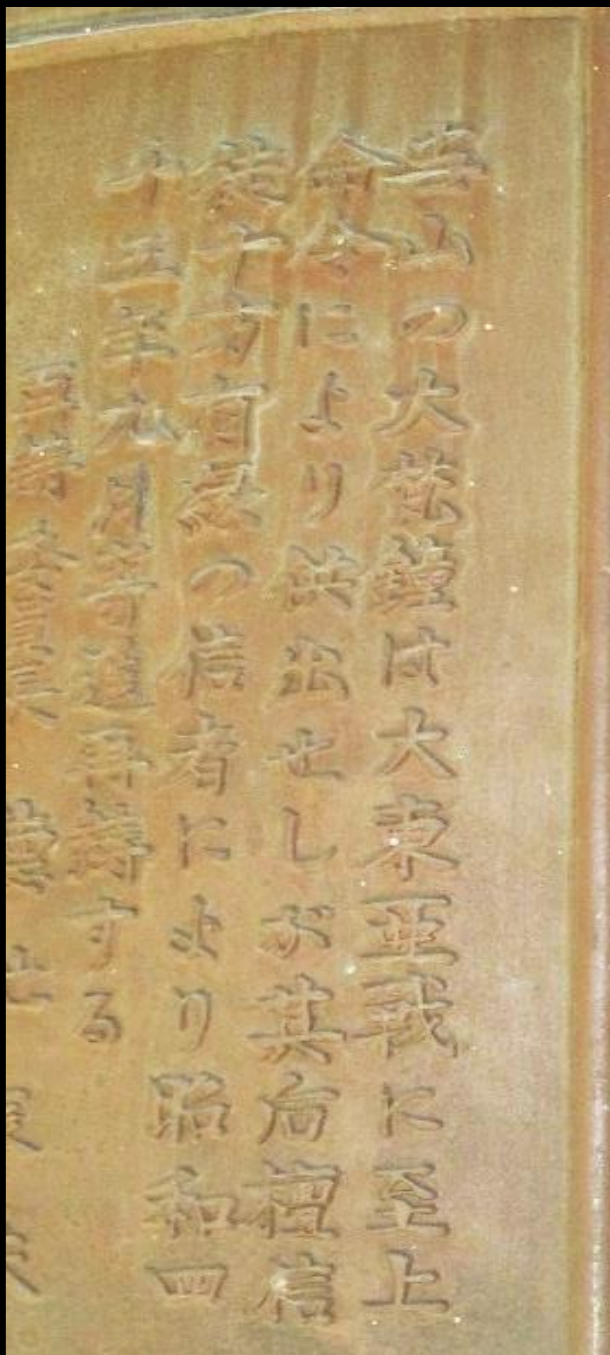 当山の大梵鐘は大東亜戦に至上
命令により供出せしが其后檀信
徒十方有縁の信者により昭和四
十五年九月寄進再鋳する
再鋳委員